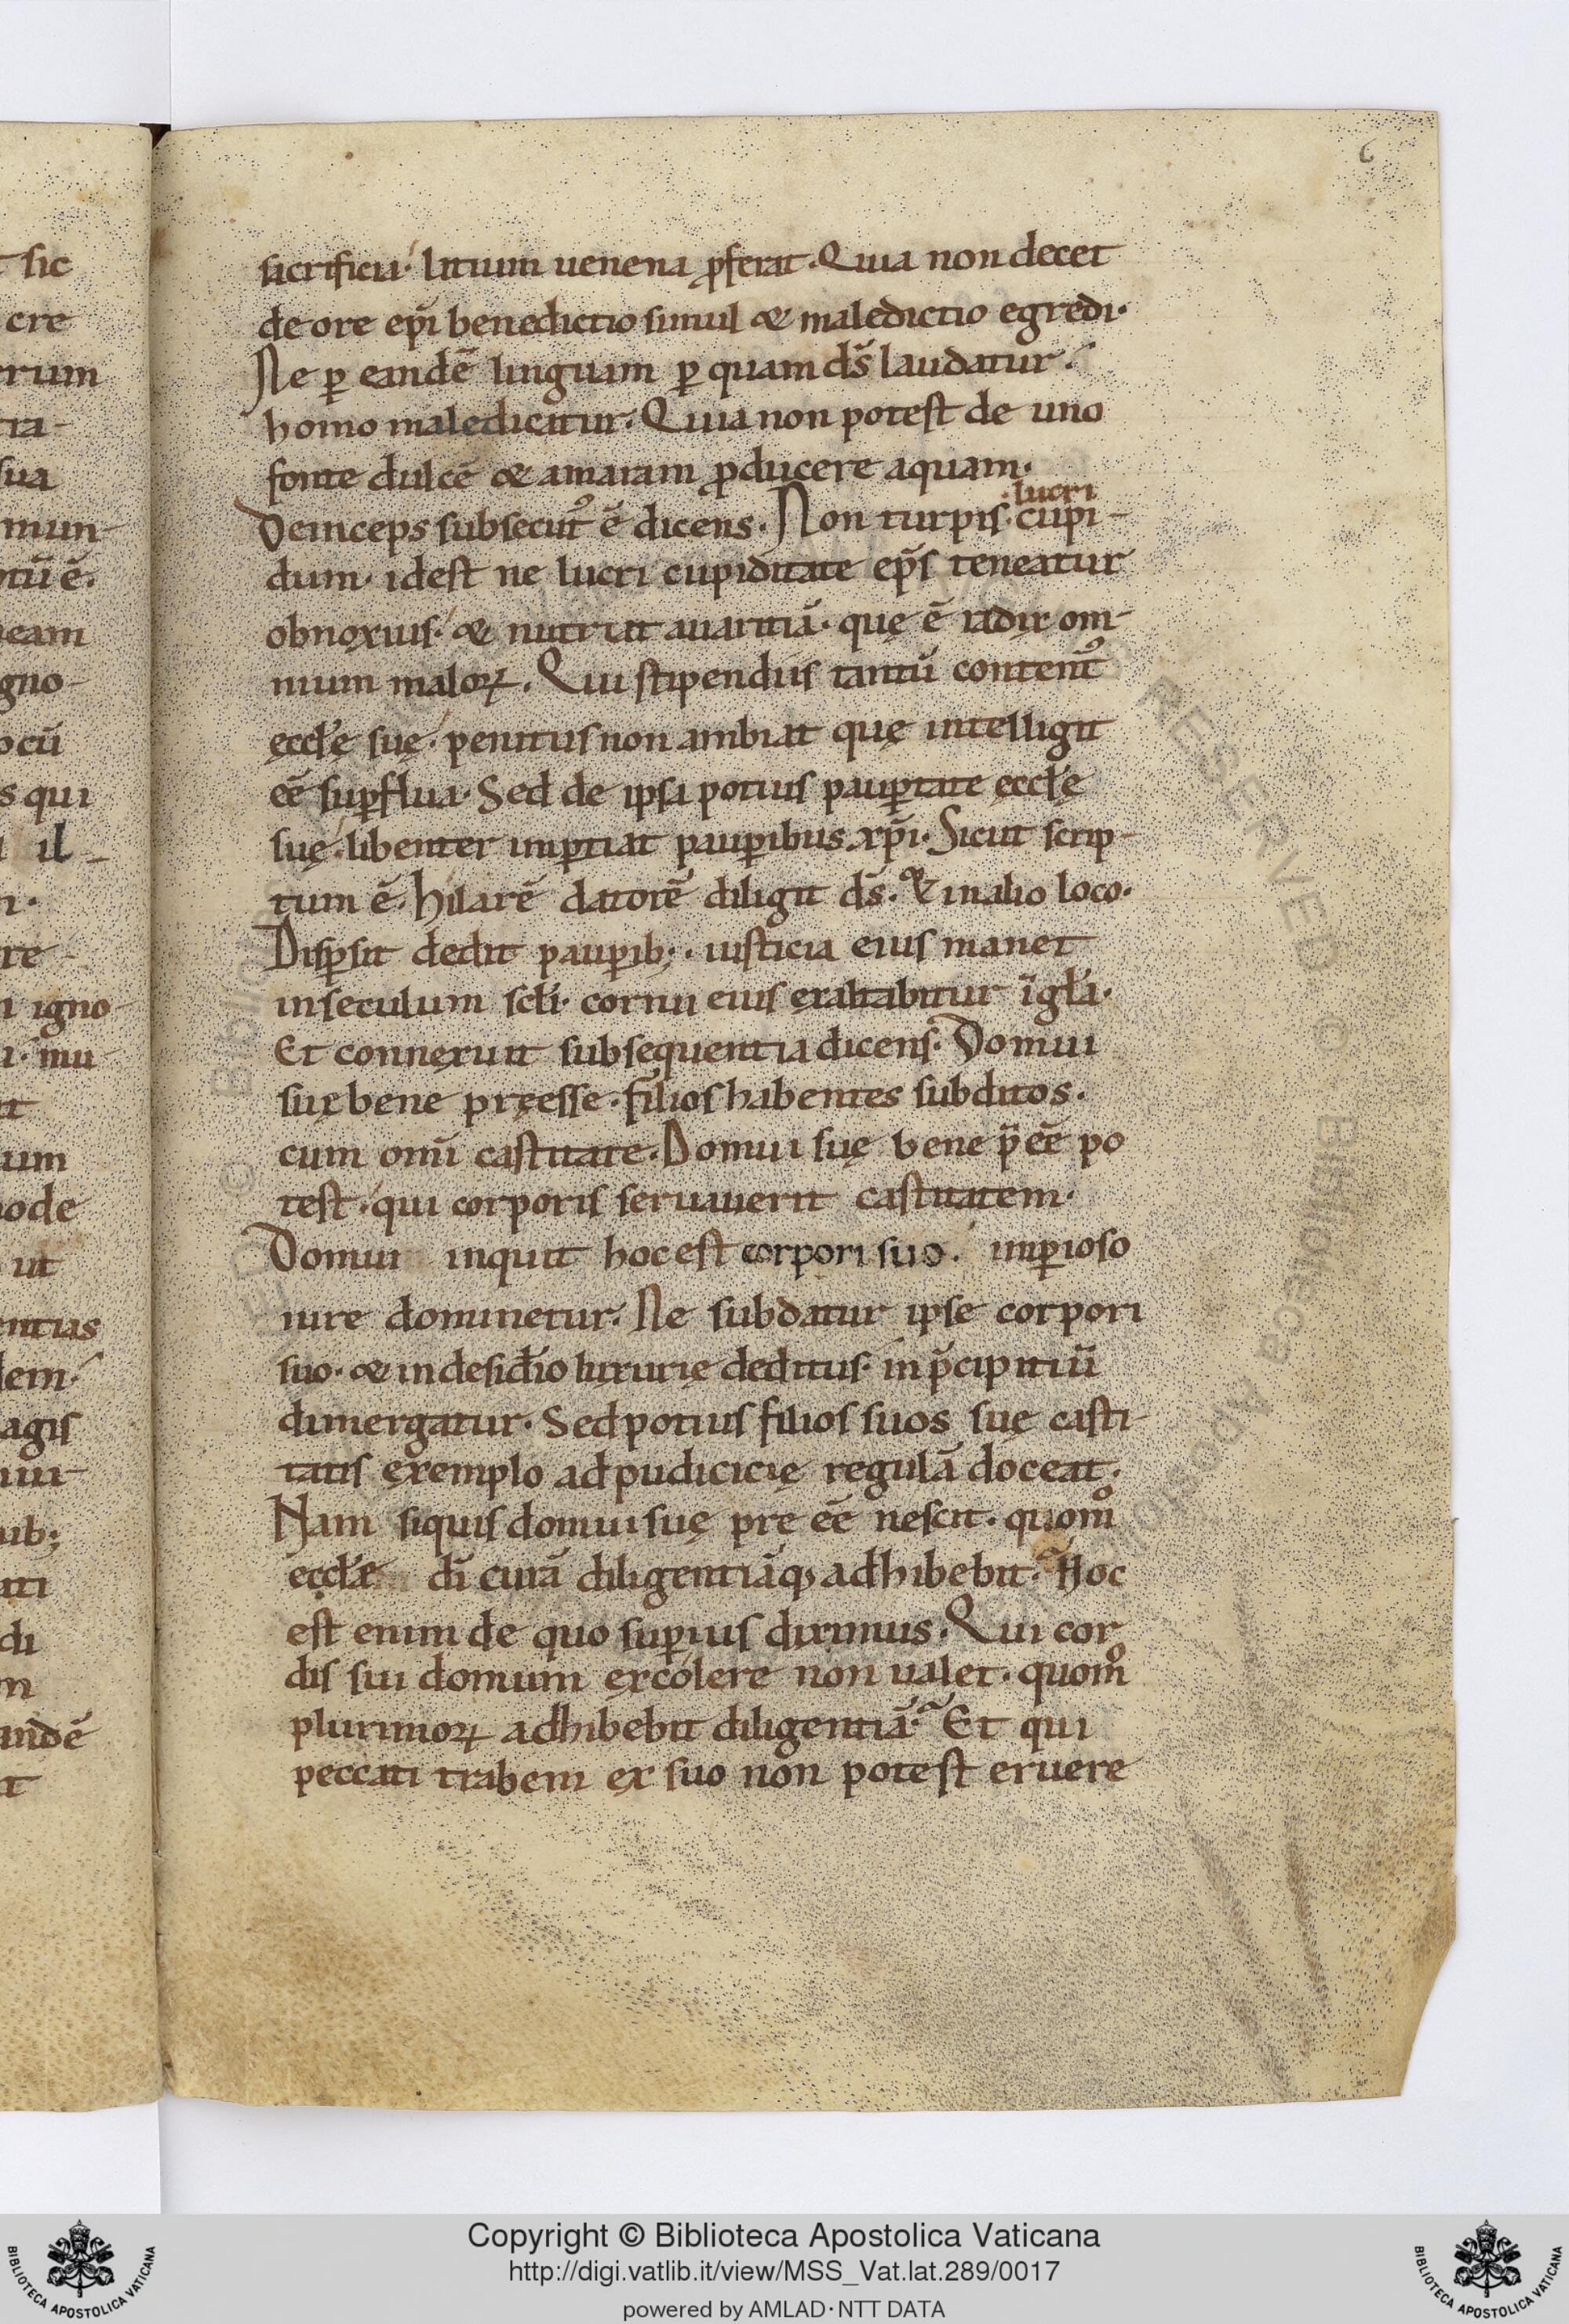 6
sic
cre
rum
tia-
sua
mun-
tū ē.
eam
gno-
ocū
s qui
il-
n.
re
n igno-
mu-
it
um
ode
ut
entias
dem
agis
ib;
iti
di
m
andē
it
sacrificia. litium uenena ꝓferat. Quia non decet
de ore ep̄i benedictio simul & maledictio egredi.
Ne ꝑ eandē linguam ꝑ quam ds̄ laudatur.
homo maledicitur. Quia non potest de uno
fonte dulcē & amaram ꝓducere aquam.
lucri
Deinceps subsecut᾿ ē dicens. Non turpis. cupi-
dum. idest ne lucri cupiditate ep̄s teneatur
obnoxius. & nutriat auaritiā. quę ē radix om-
nium maloꝝ. Qui stipendiis tantū content᾿
ęccłe suę. penitus non ambiat quę intelligit
eē suꝑflua. Sed de ipsa potius pauꝑtate ęccłę
suę. libenter imꝑtiat pauꝑibus xp̄i. Sicut scrip-
tum ē. hilarē datorē diligit ds̄. & in alio loco.
Disꝑsit dedit pauꝑib;. iusticia eius manet
in seculum scłi. cornu eius exaltabitur ī gła.
Et connexuit subsequentia dicens. Domui
suę bene pręesse. filios habentes subditos.
cum omī castitate. Domui suę bene p̄eē po
test. qui corporis seruauerit castitatem.
Domui inquit hoc est corpori suo. imꝑioso
iure dominetur. Ne subdatur ipse corpori
suo. & in desidio luxurię deditus. in p̄cipitiū
dimergatur. Sed potius filios suos suę casti-
tatis exemplo ad pudicicię regulā doceat.
Nam siquis domui suę pre eē nescit. quom̊
ęccłæ dī curā diligentiāꝙ adhibebit. Hoc
est enim de quo suꝑius diximus. Qui cor
dis sui domum excolere non ualet. quom̊
plurimoꝝ adhibebit diligentiā. Et qui
peccati trabem ex suo non potest eruere
Copyright © Biblioteca Apostolica Vaticana
http://digi.vatlib.it/view/MSS_Vat.lat.289/0017
powered by AMLAD·NTT DATA
BIBLIOTECA APOSTOLICA VATICANA
BIBLIOTECA APOSTOLICA VATICANA